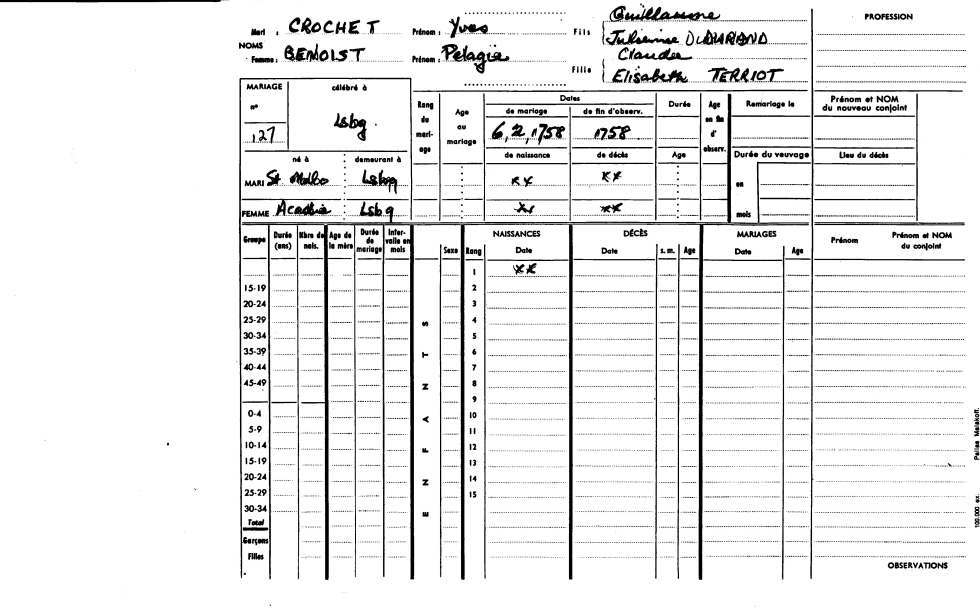 Mari : CROCHET Prénom : Yves Fils Guillaume
NOMS Julienne DURAND
Femme : BENOIST Prénom : Pelagie Fille Claude
Elisabeth TERRIOT
PROFESSION
MARIAGE célébré à
n° Lsbg
127
né à demeurant à
MARI St Malbo Lsbg
FEMME Acadbie Lsbg
Rang du mari- age
Age au mariage
Dates
de mariage de fin d'observ.
6, 2, 1758 1758
de naissance de décès
xx xx
xx xx
Durée
Age
Age en fin d' observ.
Remariage le
Durée du veuvage
en
mois
Prénom et NOM du nouveau conjoint
Lieu du décès
Groupe Durée (ans) Nbre de nais. Age de la mère Durée de mariage Inter- valle en mois Sexe Rang NAISSANCES Date DÉCÈS Date s. m. Age MARIAGES Date Age Prénom Prénom et NOM du conjoint
1 xx
15-19 2
20-24 3
25-29 4
30-34 5
35-39 6
40-44 7
45-49 8
9
0-4 10
5-9 11
10-14 12
15-19 13
20-24 14
25-29 15
30-34
Total
Garçons
Filles
ENFANTS
OBSERVATIONS
100.000 ex. Pallas Malakoff.